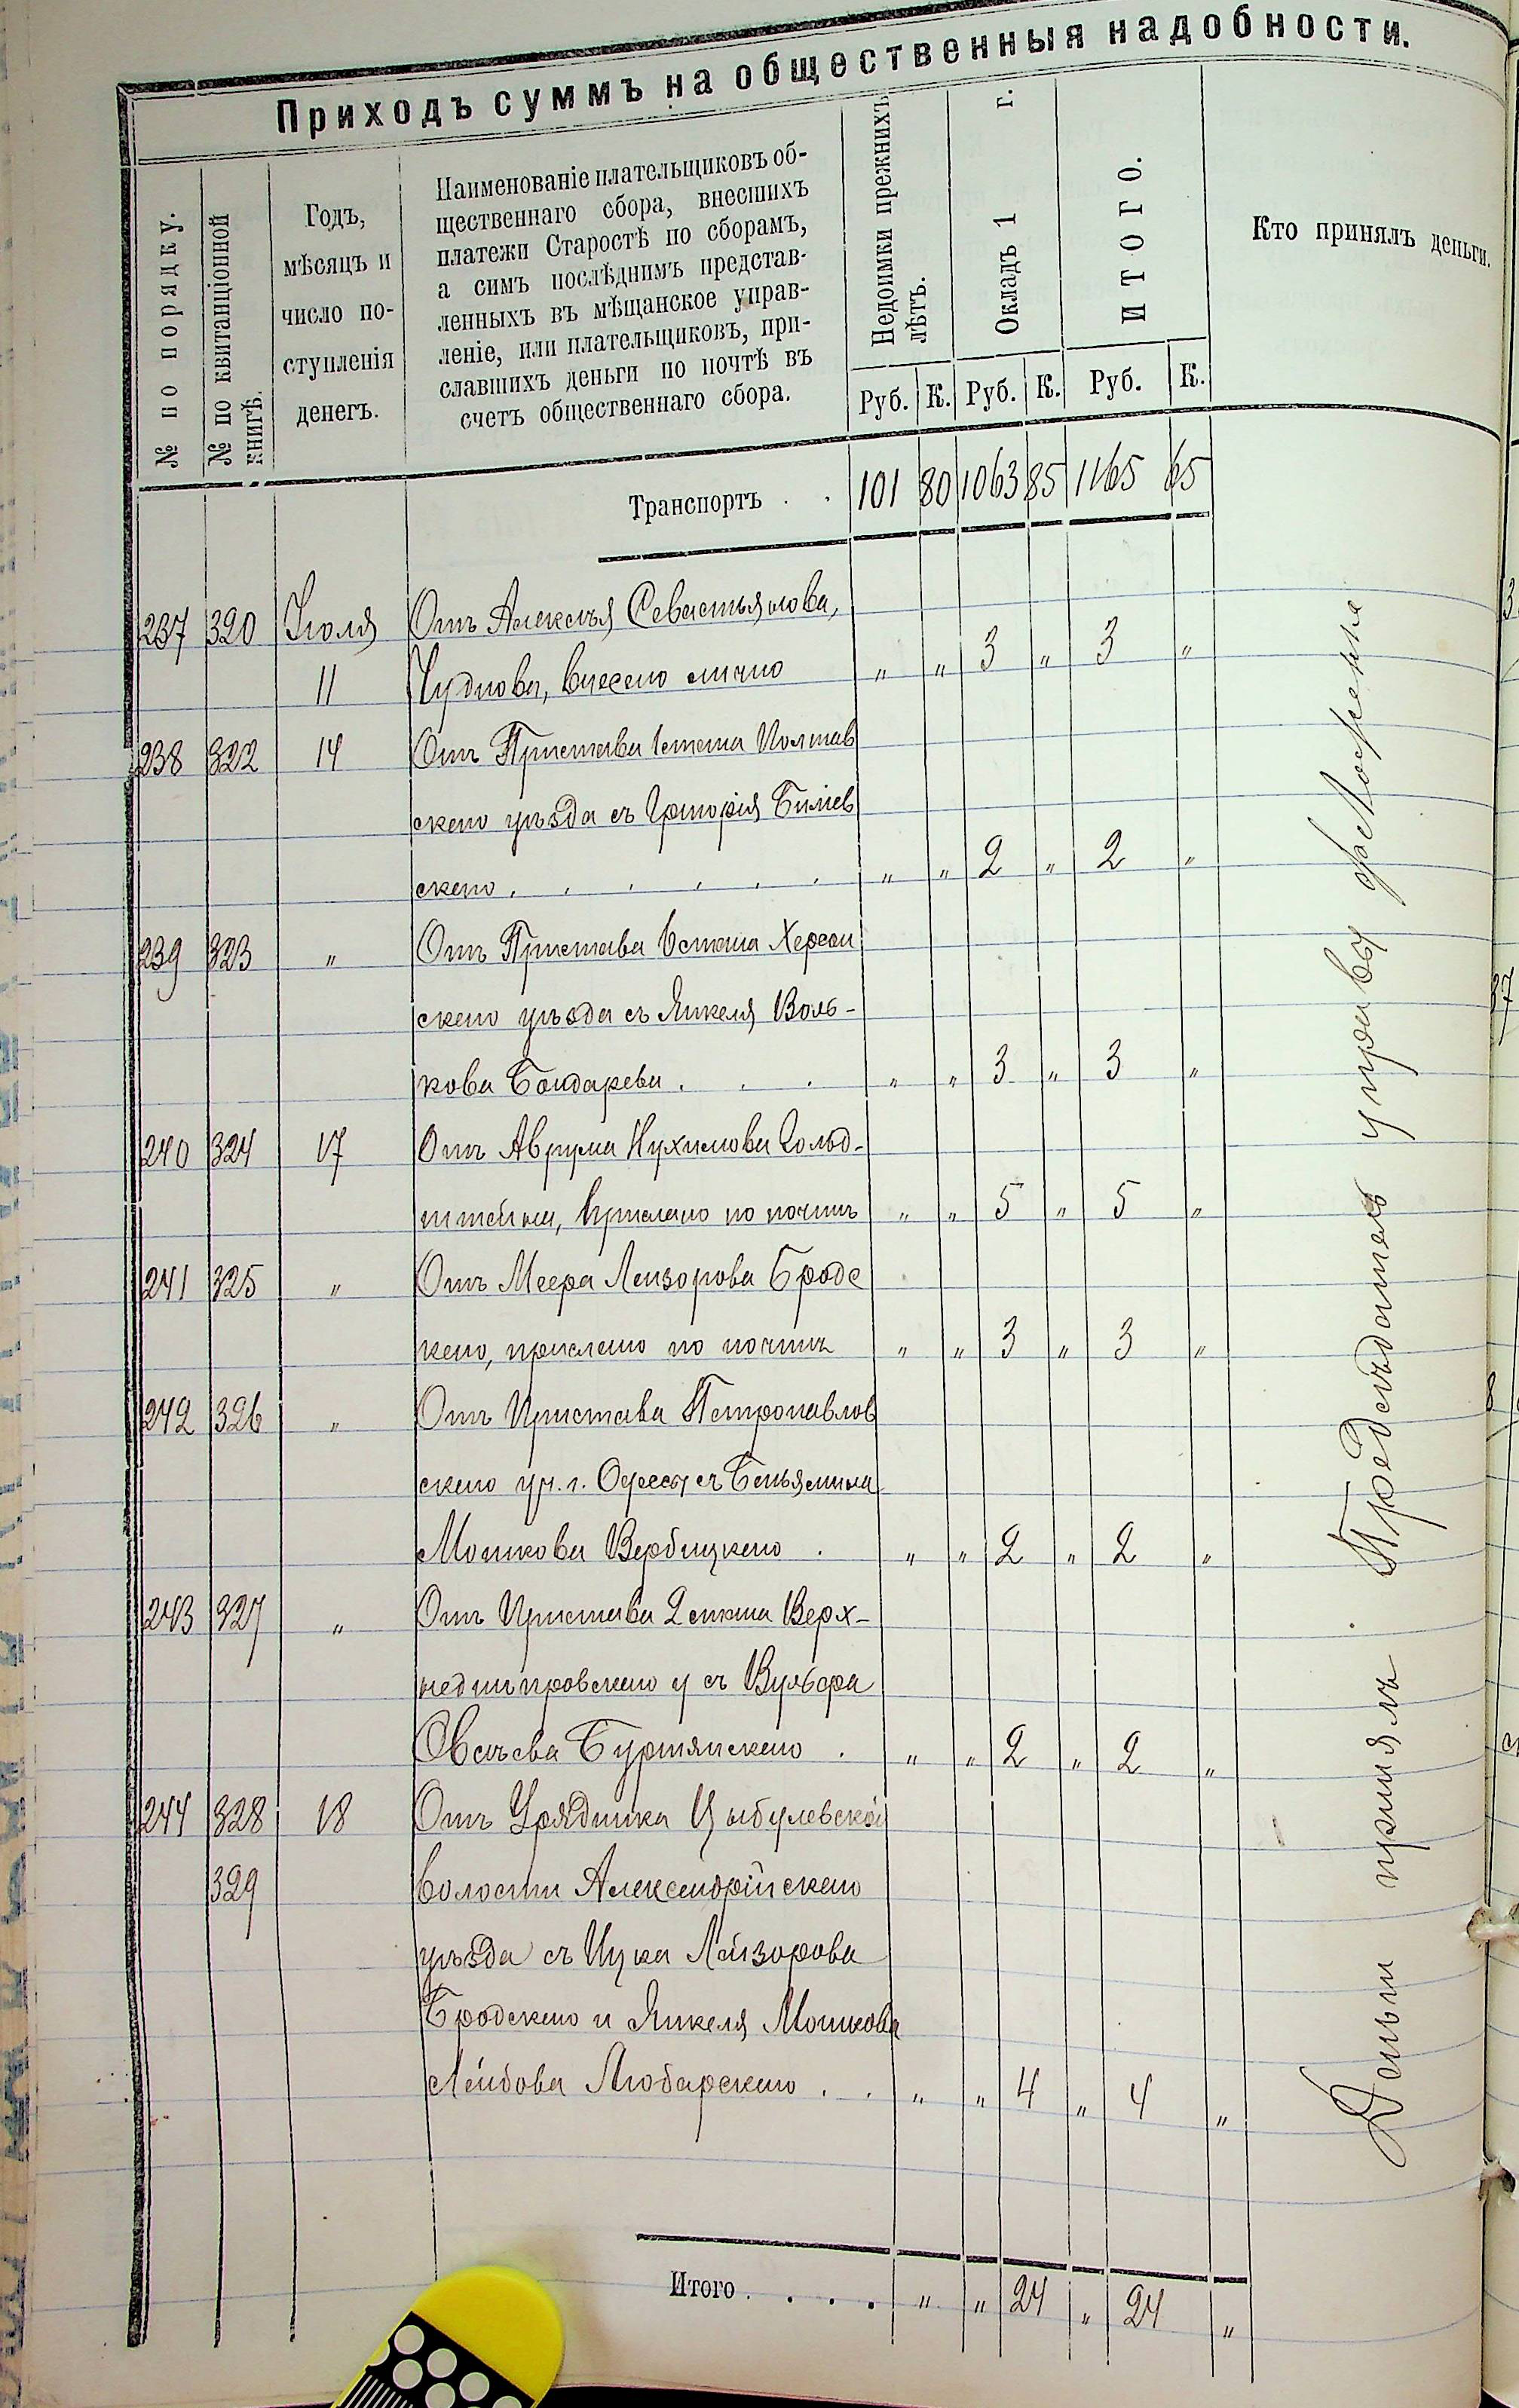 Приходъ суммъ на общественныя надобности.
№ по порядку.
№ по квитанціонной
книгѣ.
Годъ,
мѣсяцъ и
число по-
ступленія
денегъ.
Наименованіе плательщиковъ об-
щественнаго сбора, внесшихъ
платежи Старостѣ по сборамъ,
а симъ послѣднимъ представ-
ленныхъ въ мѣщанское управ-
леніе, или плательщиковъ, при-
славшихъ деньги по почтѣ въ
счетъ общественнаго сбора.
Недоимки прежнихъ
лѣтъ.
Окладъ 1 г.
ИТОГО.
Кто принялъ деньги.
Руб. К. Руб. К. Руб. К.
Транспортъ . . 101 80 1063 85 1165 65
237 320 Іюля Отъ Алексѣя Севастьянова
11 Чуднова, внесено лично " " 3 " 3 "
238 322 14 Отъ Пристава 1 стана Полтав
скаго уѣзда съ Григорія Биліев
скаго . . . . . . " " 2 " 2 "
239 323 " Отъ Пристава 6 стана Херсон
скаго уѣзда съ Янкеля Воль-
кова Бондарева . . . " " 3 " 3 "
240 324 17 Отъ Аврума Нухимова Гольд-
штейна, прислано по почтѣ " " 5 " 5 "
241 325 " Отъ Меера Лейзорова Бродс
каго, прислано по почтѣ " " 3 " 3 "
242 326 " Отъ Пристава Петропавлов
скаго уч. г. Одессы съ Беньямина
Мошкова Вербицкаго . " " 2 " 2 "
243 327 " Отъ Пристава 2 стана Верх-
неднипровскаго у съ Вульфа
Овсѣева Буртянскаго . " " 2 " 2 "
244 328 18 Отъ Урядника Цыбулевской
329 волости Александрійскаго
уѣзда съ Ицка Лейзорова
Бродскаго и Янкеля Мошкова
Лейбова Любарскаго . . " " 4 " 4 "
Итого . . . . " " 24 " 24 "
Деньги принялъ . Предсѣдатель управы